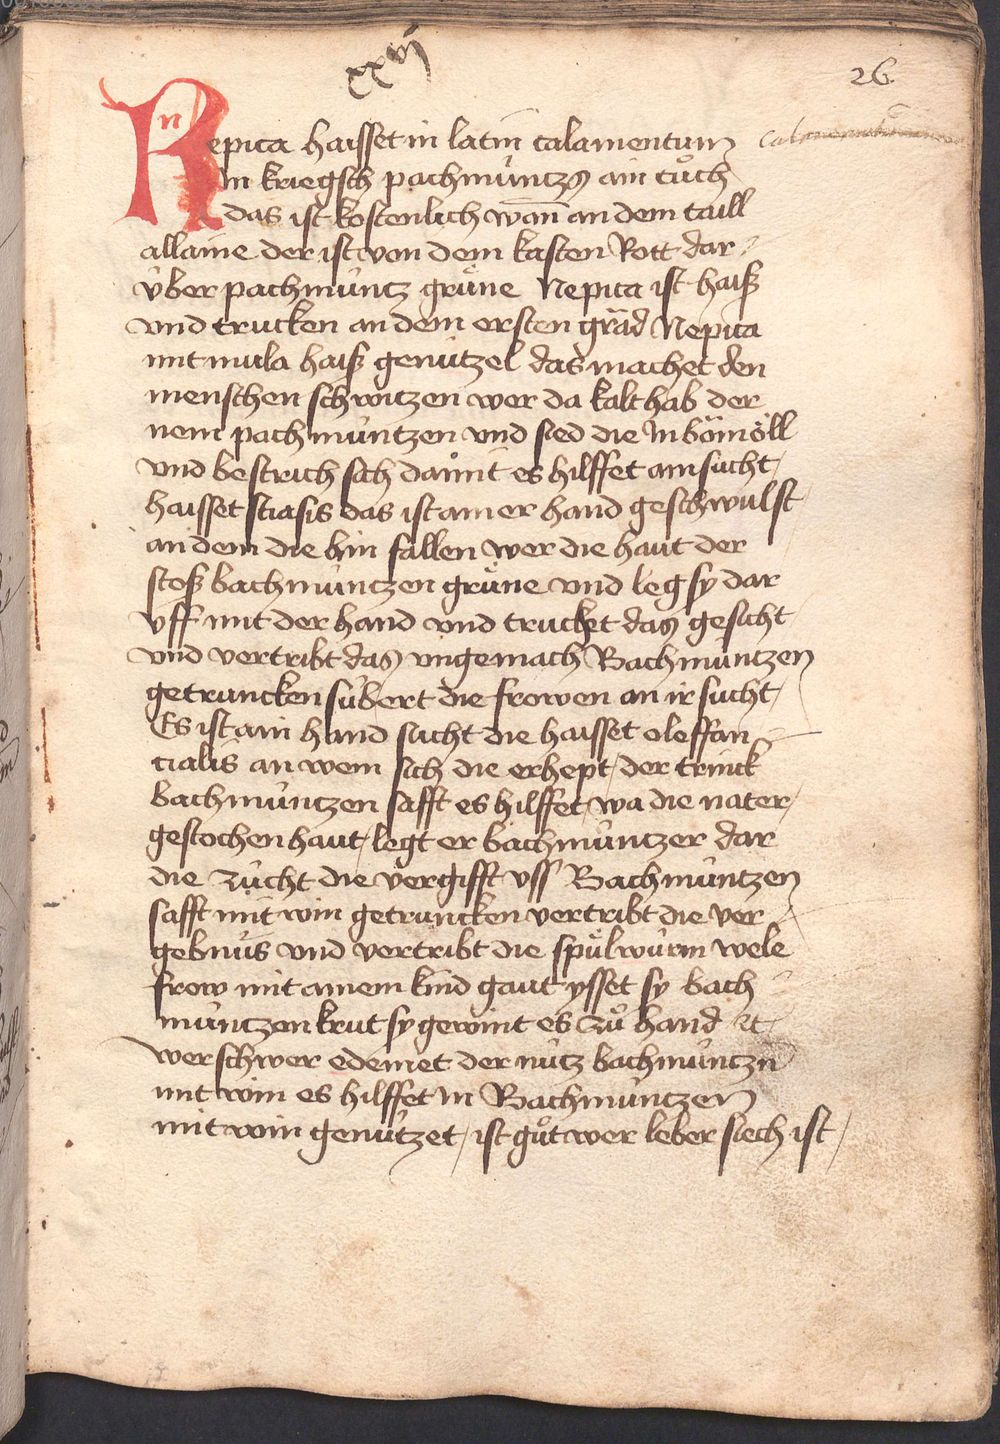 xxvj
26
Nepica haisset in latin calamentum
In kriegsch pachmüntzs ain tůch
das ist kostenlich wān an dem taill
allaine der ist von dem kasten Rott dar
v̈ber pachmüntz grüne Nepita ist haiß
vnd trucken an dem ersten gräd Nepita
mit mula haiß genützel das machet den
menschen schwitzen wer da kalt hab der
nem pachmüntzen vnd sied die In bömöll
vnd bestrich sich damit es hilffet ain sucht
haisset stiasis das ist ainer hand geschwulst
an dem die hin fallen wer die haut der
stoß bachmüntzen grüne vnd leg sy dar
vff mit der hand vnd trucket das gesicht
vnd vertribt das vngemach Bachmüntzen
getruncken sübert die frowen an ir sucht
Es ist ain hand sucht die haisset oleffan
cialis an wem sich die erhept der trinck
bachmüntzen safft es hilffet wa die nater
gestochen haut legt er bachmüntzer dar
die zücht die vergifft vss Bachmüntzen
safft mit win getruncken vertribt die ver
gebnüs vnd vertribt die spülwürm wele
frow mit ainem kind gaut ysset sy bach
müntzen krut sy gewint es zů hand Jt
wer schwer edemet der nütz bachmüntzn
mit win es hilffet in Bachmüntzen
mit win genützet ist gůt wer leber siech ist